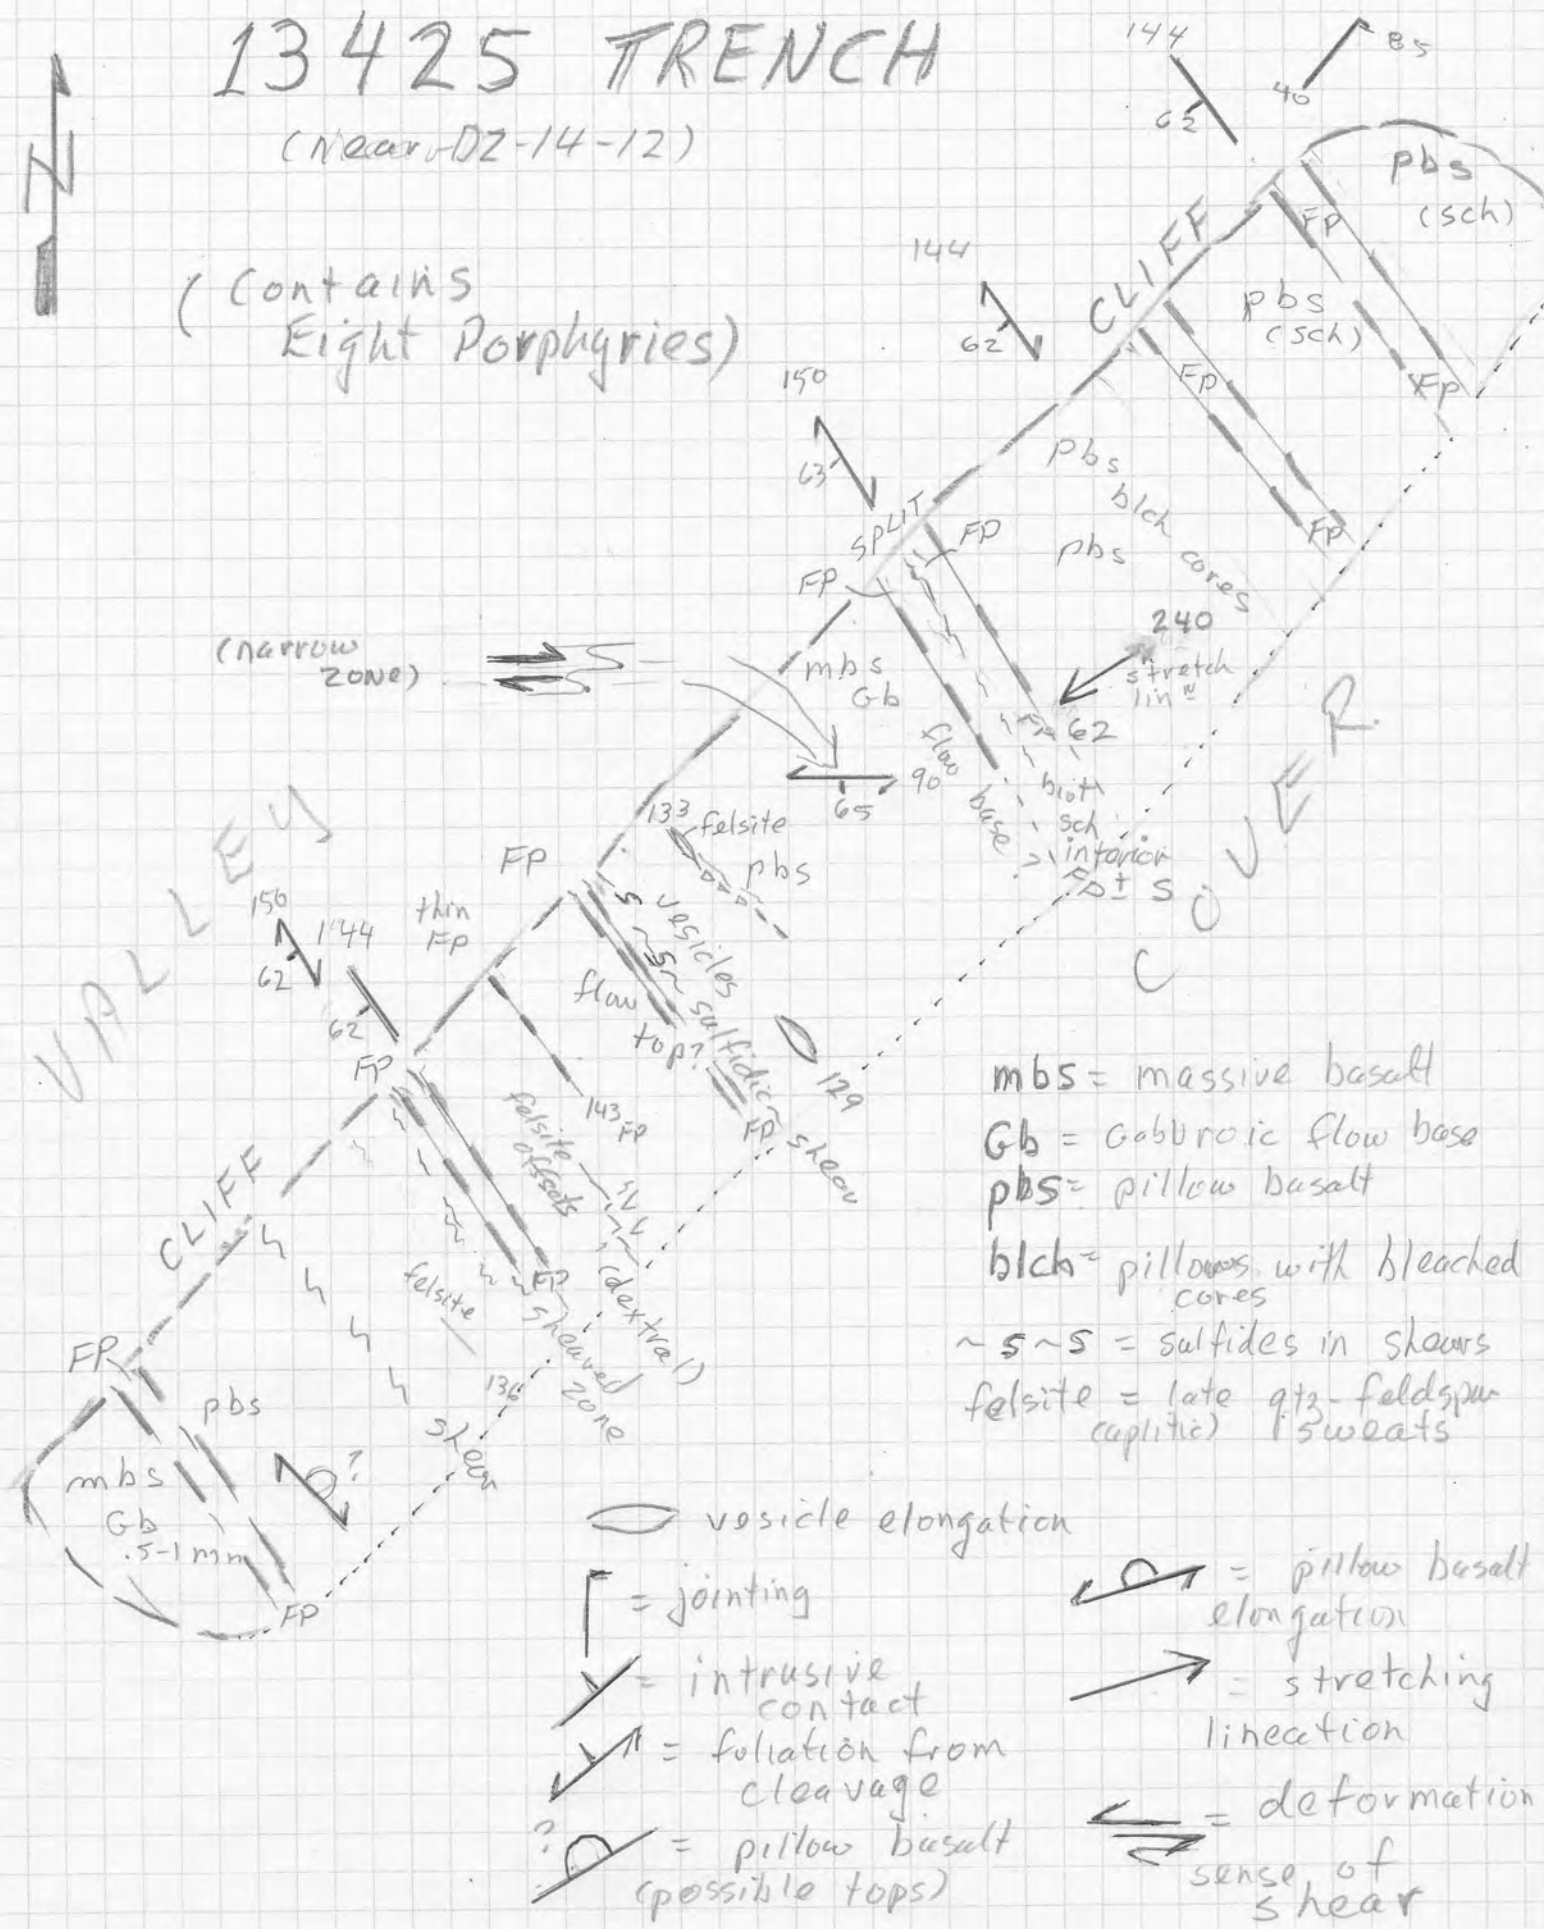 13425 TRENCH
(Near DZ-14-12)
(Contains
Eight Porphyries)
N
144
62
85
40
pbs
(sch)
FP
CLIFF
pbs
(sch)
FP
144
62
FP
FP
150
63
pbs
blch cores
pbs
SPLIT
FP
FP
240
stretch
lin n
62
(narrow
ZONE)
mbs
Gb
flow
base
90
65
biot
sch
interior
FP ± S
COVER
133
felsite
pbs
VALLEY
FP
thin
FP
150
62
144
62
vesicles
flow
top?
sulfidic
shear
129
FP
FP
143
FP
felsite
offsets
(dextral)
felsite
FP
sheared
zone
136
CLIFF
shear
FP
pbs
mbs
Gb
.5-1mm
?
FP
mbs = massive basalt
Gb = Gabbroic flow base
pbs = pillow basalt
blch = pillows with bleached
cores
~s~s = sulfides in shears
felsite = late qtz-feldspar
(aplitic) sweats
vesicle elongation
= jointing
= intrusive
contact
= foliation from
cleavage
? = pillow basalt
(possible tops)
= pillow basalt
elongation
= stretching
lineation
= deformation
sense of
shear